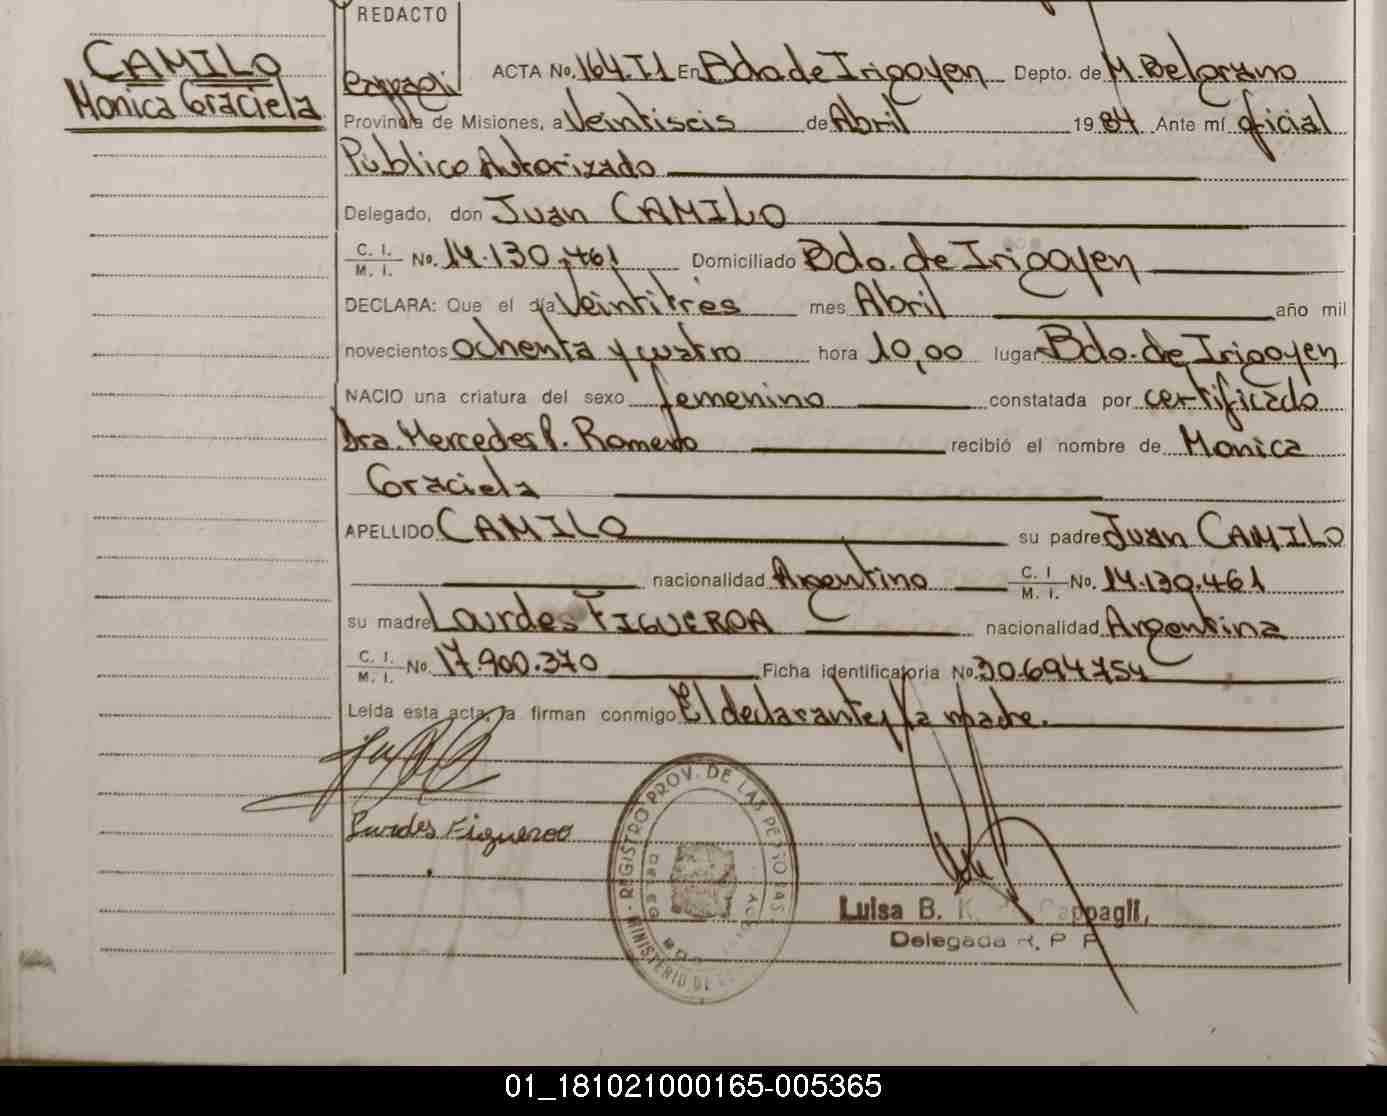 REDACTO
CAMILO
Monica Graciela
ACTA No. 164.T1 En Bdo de Irigoyen Depto. de M. Belgrano
Provincia de Misiones, a Veintiseis de Abril 1984 Ante mí oficial
Público Autorizado
Delegado, don Juan CAMILO
C. I. / M. I. No. 14.130.461 Domiciliado Bdo. de Irigoyen
DECLARA: Que el día Veintitrés mes Abril año mil
novecientos ochenta y cuatro hora 10,00 lugar Bdo. de Irigoyen
NACIO una criatura del sexo femenino constatada por certificado
Dra. Mercedes P. Romero recibió el nombre de Monica
Graciela
APELLIDO CAMILO su padre Juan CAMILO
nacionalidad Argentino C. I / M. I. No. 14.130.461
su madre Lourdes FIGUEROA nacionalidad Argentina
C. I. / M. I. No. 17.900.370 Ficha identificatoria No. 30.694.754
Leída esta acta, la firman conmigo El declarante y la madre.
Lurdes Figueroo
REGISTRO PROV. DE LAS PERSONAS
MINISTERIO DE
Luisa B. K. Cappagli,
Delegada R. P. P
01_181021000165-005365